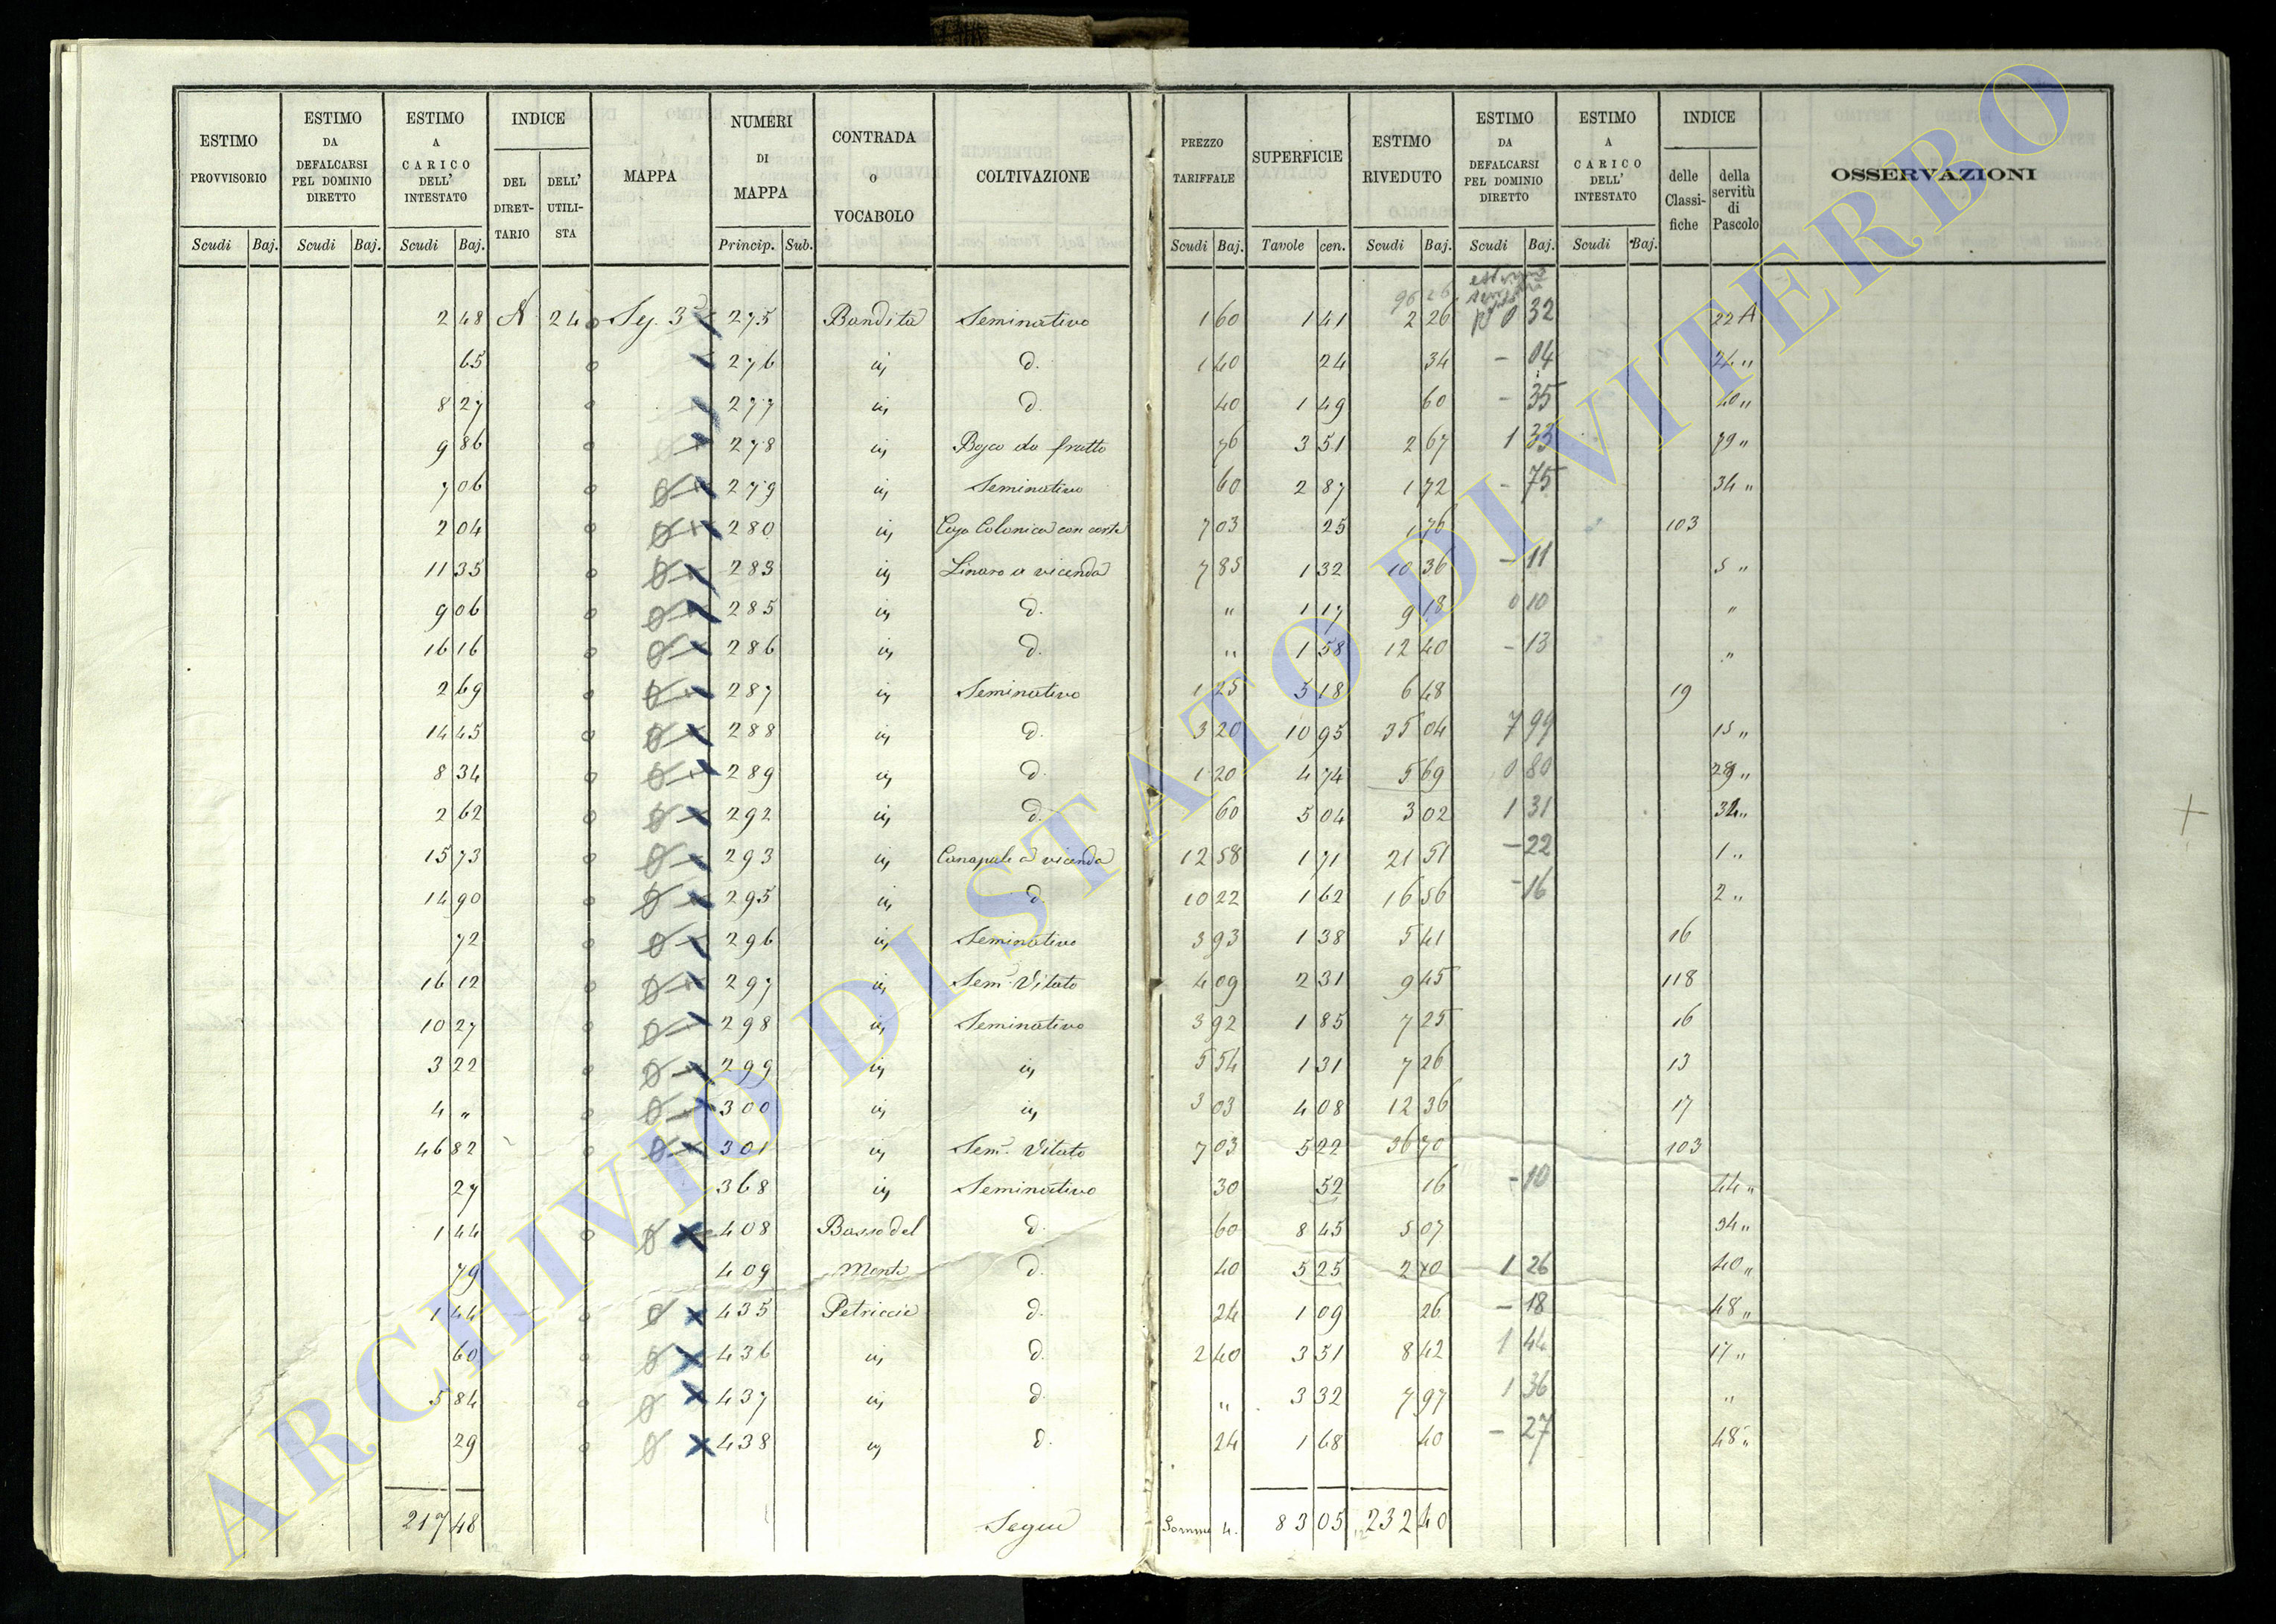 ESTIMO PROVVISORIO | ESTIMO DA DEFALCARSI PEL DOMINIO DIRETTO | ESTIMO A CARICO DELL' INTESTATO | INDICE DEL DIRET-TARIO | DELL' UTILI-STA | MAPPA | NUMERI DI MAPPA | CONTRADA O VOCABOLO | COLTIVAZIONE | PREZZO TARIFFALE | SUPERFICIE | ESTIMO RIVEDUTO | ESTIMO DA DEFALCARSI PEL DOMINIO DIRETTO | ESTIMO A CARICO DELL' INTESTATO | INDICE delle Classi-fiche | della servitù di Pascolo | OSSERVAZIONI
Scudi Baj. | Scudi Baj. | Scudi Baj. | Princip. Sub. | Scudi Baj. | Tavole cen. | Scudi Baj. | Scudi Baj. | Scudi Baj.
96 26
2 48 | 24 | Sez. 3ª | 275 | Bandita | Seminativo | 1 60 | 1 41 | 2 26 | 0 32 | 22 A
65 | 276 | in | d. | 1 40 | 24 | 34 | - 04 | 24 "
8 27 | 277 | in | d. | 40 | 1 49 | 60 | - 35 | 40 "
9 86 | 278 | in | Bosco da frutto | 76 | 3 51 | 2 67 | 1 33 | 79 "
7 06 | 279 | in | Seminativo | 60 | 2 87 | 1 72 | - 75 | 34 "
2 04 | 280 | in | Casa Colonica con corte | 7 03 | 25 | 1 76 | 103
11 35 | 283 | in | Linaro a vicenda | 7 85 | 1 32 | 10 36 | - 11 | 5 "
9 06 | 285 | in | d. | " | 1 17 | 9 18 | 0 10 | "
16 16 | 286 | in | d. | " | 1 58 | 12 40 | - 13 | "
2 69 | 287 | in | Seminativo | 1 25 | 5 18 | 6 48 | 19
14 45 | 288 | in | d. | 3 20 | 10 95 | 35 04 | 7 99 | 15 "
8 34 | 289 | in | d. | 1 20 | 4 74 | 5 69 | 0 80 | 29 "
2 62 | 292 | in | d. | 60 | 5 04 | 3 02 | 1 31 | 34 "
15 73 | 293 | in | Canapule a vicenda | 12 58 | 1 71 | 21 51 | - 22 | 1 "
14 90 | 295 | in | d. | 10 22 | 1 62 | 16 56 | - 16 | 2 "
72 | 296 | in | Seminativo | 3 93 | 1 38 | 5 41 | 16
16 12 | 297 | in | Sem. Vitato | 4 09 | 2 31 | 9 45 | 118
10 27 | 298 | in | Seminativo | 3 92 | 1 85 | 7 25 | 16
3 22 | 299 | in | in | 5 54 | 1 31 | 7 26 | 13
4 " | 300 | in | in | 3 03 | 4 08 | 12 36 | 17
46 82 | 301 | in | Sem. Vitato | 7 03 | 5 22 | 36 70 | 103
27 | 368 | in | Seminativo | 30 | 52 | 16 | - 10 | 44 "
1 44 | 408 | Basso del | d. | 60 | 8 45 | 5 07 | 34 "
79 | 409 | Monte | d. | 40 | 5 25 | 2 10 | 1 26 | 40 "
1 44 | 435 | Petriccie | d. | 24 | 1 09 | 26 | - 18 | 48 "
60 | 436 | in | d. | 2 40 | 3 51 | 8 42 | 1 44 | 17 "
5 84 | 437 | in | d. | " | 3 32 | 7 97 | 1 36 | "
29 | 438 | in | d. | 24 | 1 68 | 40 | - 27 | 48 "
217 48 | Segue | Somma 4. | 83 05 | 232 40
ARCHIVIO DI STATO DI VITERBO